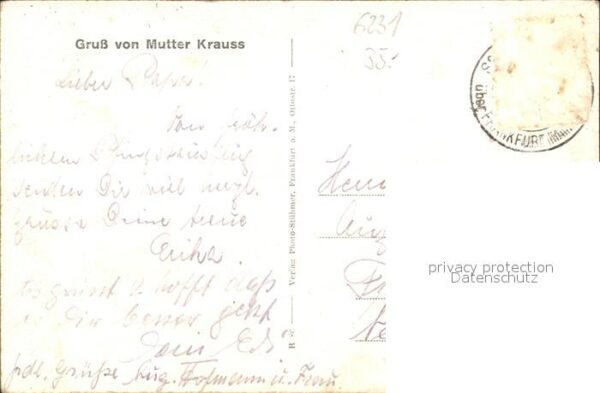 Gruß von Mutter Krauss
6231
35.-
Lieber Papa!
Vom fröh-
lichen Pfingstausflug
senden Dir viel
Grüsse Deine treue
Erika.
Es grüsst u. hofft daß
es Dir besser geht
Dein Edi
frdl. Grüße Aug. Hofmann u. Frau.
R 37 — Verlag Photo-Stühmer, Frankfurt a. M., Ottostr. 17
über FRANKFURT (MAIN)
privacy protection
Datenschutz